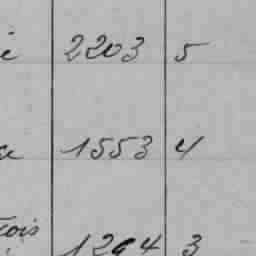 e 2203 5
a 1553 4
tois
1264 3